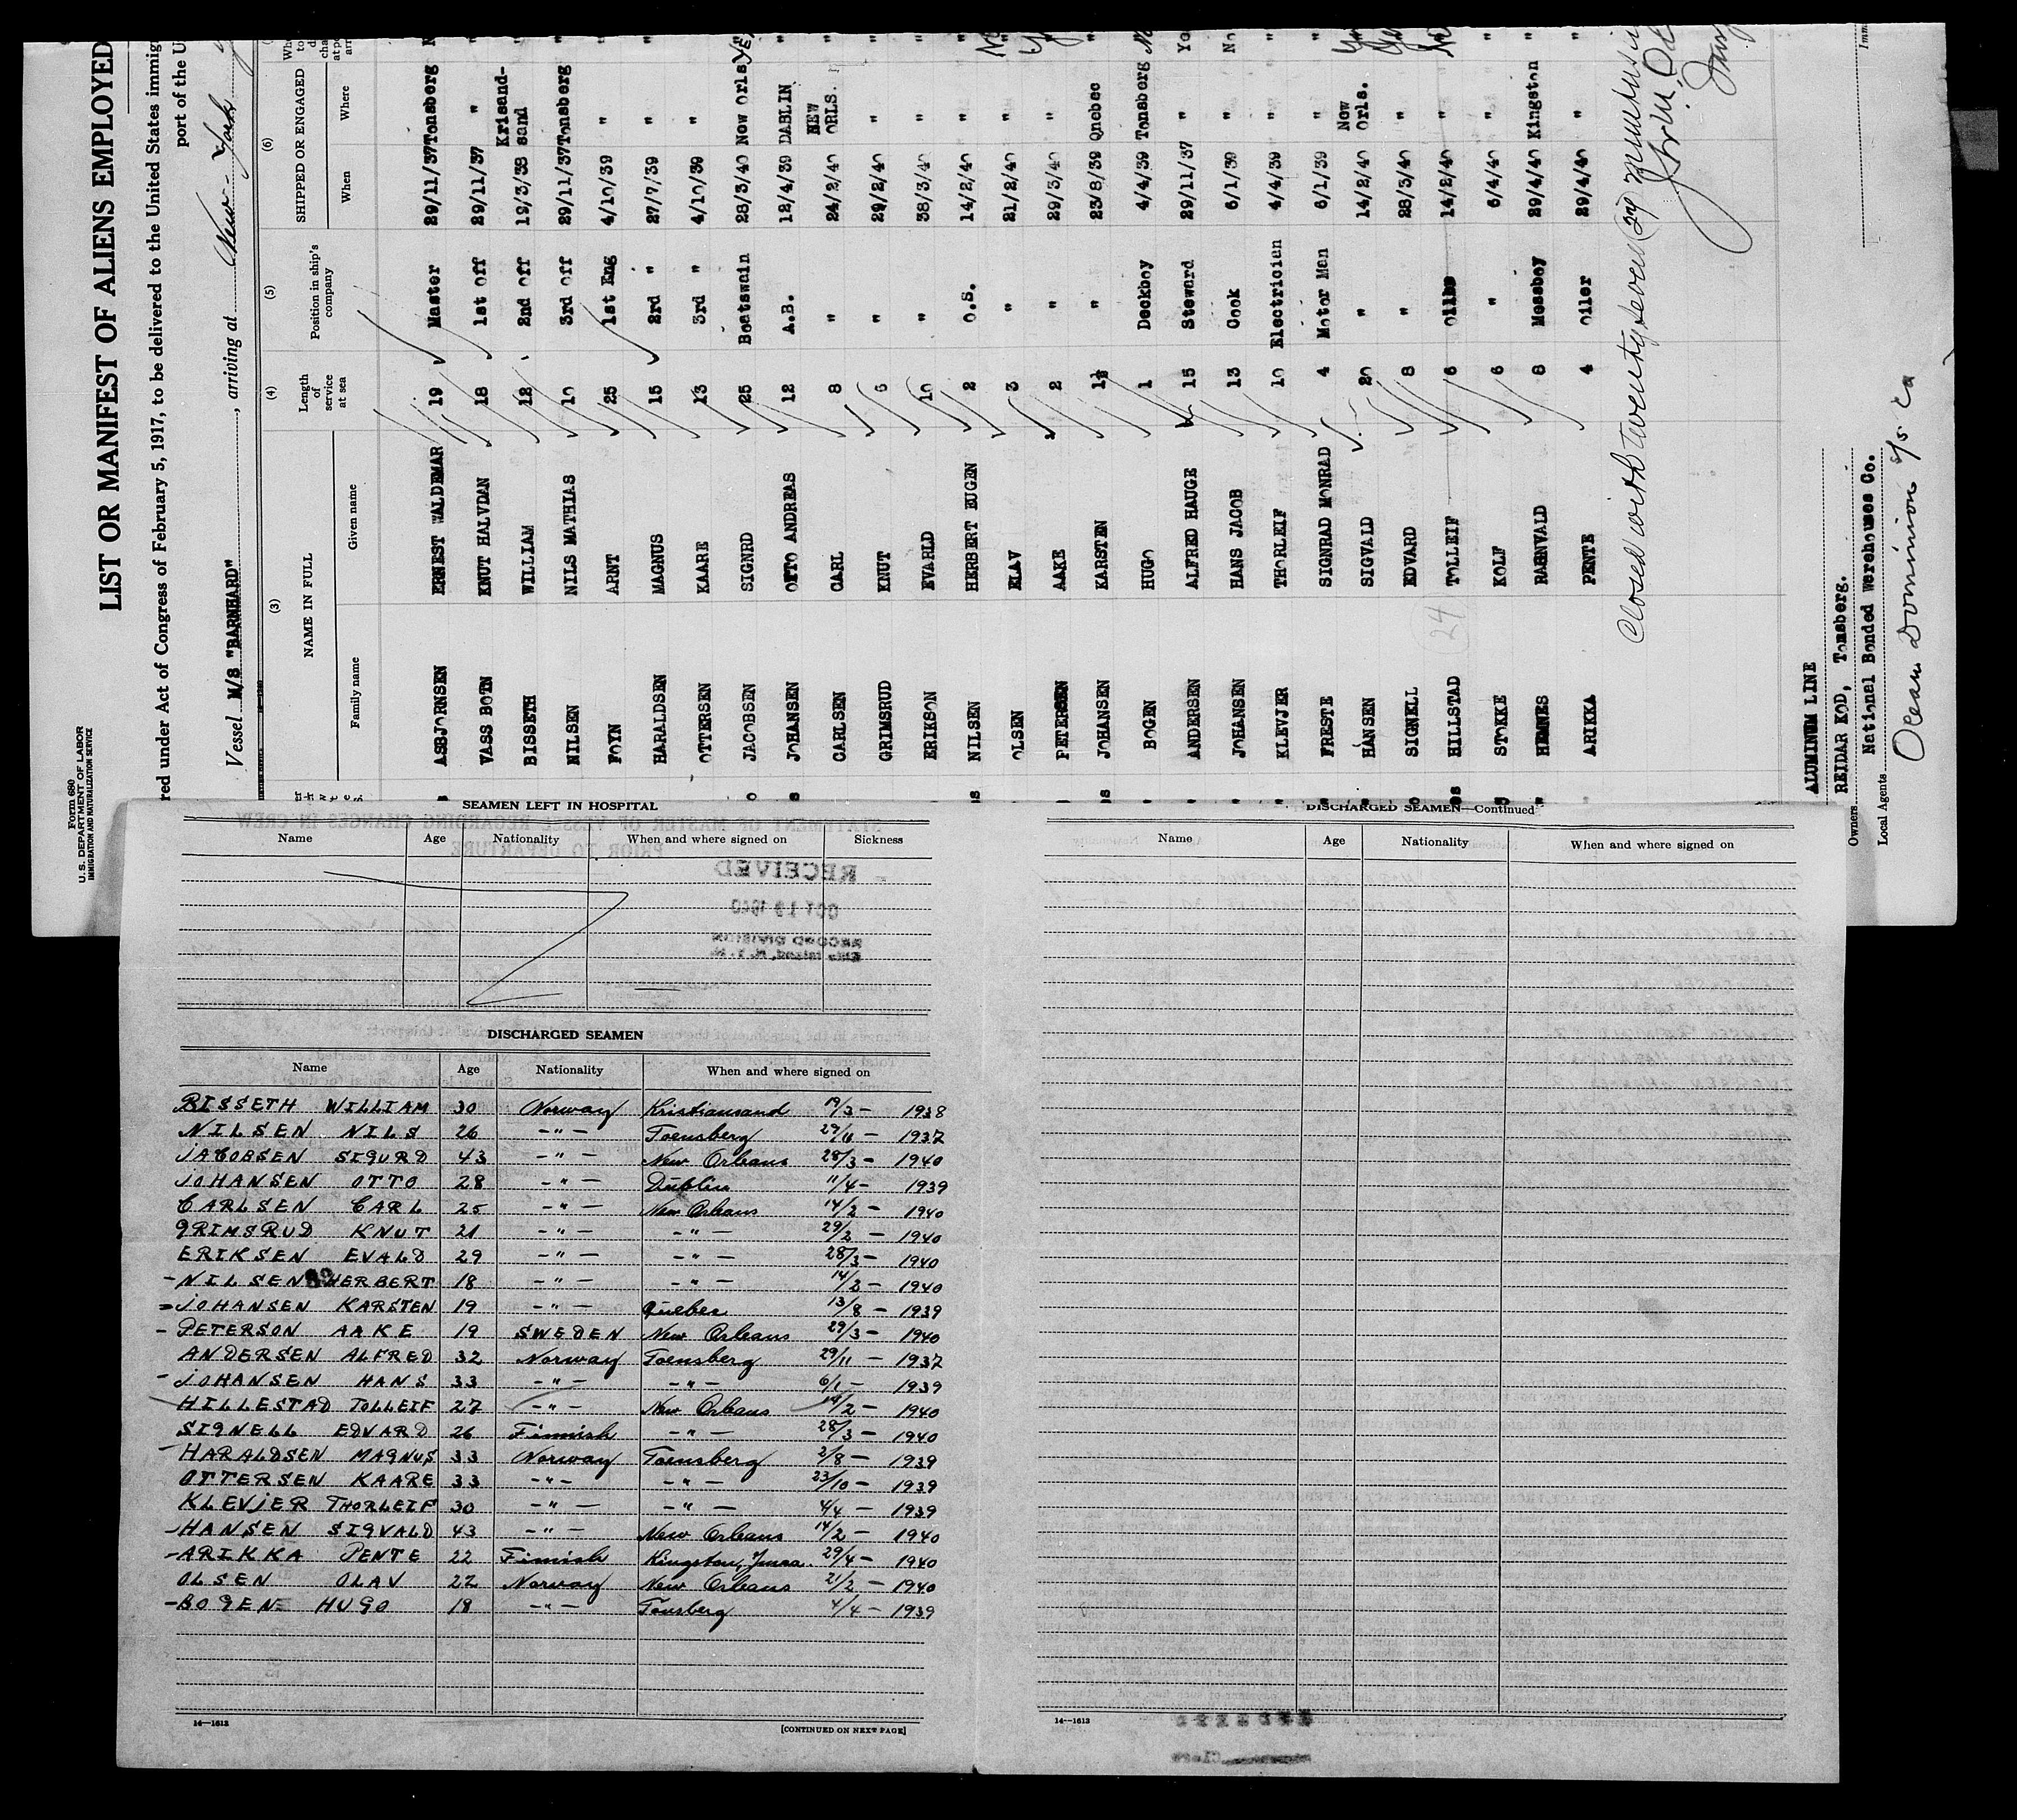 Form 680
U. S. DEPARTMENT OF LABOR
IMMIGRATION AND NATURALIZATION SERVICE
LIST OR MANIFEST OF ALIENS EMPLOYED
red under Act of Congress of February 5, 1917, to be delivered to the United States immig
port of the U
Vessel M/S "BARNHARD", arriving at New-York
(3) (4) (5) (6)
NAME IN FULL Length of service at sea Position in ship's company SHIPPED OR ENGAGED
Family name Given name When Where
ASBJORNSEN ERNEST WALDEMAR 19 Master 29/11/37 Tonsberg
VASS BOTN KNUT HALVDAN 18 1st Off 29/11/37 "
BISSETH WILLIAM 12 2nd Off 19/3/38 Krisand-sand
NILSEN NILS MATHIAS 10 3rd Off 29/11/37 Tonsberg
FOYN ARNT 25 1st Eng 4/10/39 "
HARALDSEN MAGNUS 15 2rd " 27/7/39 "
OTTERSEN KAARE 13 3rd " 4/10/39 "
JACOBSEN SIGNRD 25 Boatswain 28/3/40 New Orls Yes
JOHANSEN OTTO ANDREAS 12 A.B. 12/4/39 DABLIN "
CARLSEN CARL 8 " 24/2/40 NEW ORLS. "
GRIMSRUD KNUT 6 " 29/2/40 " "
ERIKSON EVARLD 10 " 38/3/40 " "
NILSEN HERBERT EUGEN 2 O.S. 14/2/40 " No
OLSEN ELAV 3 " 21/2/40 "
PETERSEN AAKE 2 " 29/3/40 "
JOHANSEN KARSTEN 1½ " 23/8/39 Qnebec "
BOGEN HUGO 1 Deckboy 4/4/39 Tonsberg No
ANDERSEN ALFRED HAUGE 15 Steward 29/11/37 " Ye
JOHANSEN HANS JACOB 13 Cook 6/1/39 " No
KLEVJER THORLEIF 10 Electrician 4/4/39 " "
FRESTE SIGNRAD MONRAD 4 Motor Man 6/1/39 " "
HANSEN SIGVALD 20 " 14/2/40 New Orls.
SIGNELL EDVARD 8 " 28/3/40 "
HILLSTAD TOLLEIF 6 14/2/40 " No
(24)
STOKKE KOLF 6 " 6/4/40 " "
HEMNES RAGNVALD 8 Messboy 29/4/40 Kingston "
ARIKKA PENTE 4 Oiler 29/4/40 " "
Closed with twenty seven (27)
ALUMINUM LINE
Owners REIDAR KOD, Tonsberg.
Local Agents National Bonded Werehouses Co.
Ocean Dominion S/S. Co
SEAMEN LEFT IN HOSPITAL
Name Age Nationality When and where signed on Sickness
RECEIVED
OCT 19 1940
RECORD DIVISION
Ellis Island, N. Y. H.
DISCHARGED SEAMEN
Name Age Nationality When and where signed on
BISSETH WILLIAM 30 Norway Kristiansand 19/3 - 1938
NILSEN NILS 26 -"- Toensberg 29/11 - 1937
JACOBSEN SIGURD 43 -"- New Orleans 28/3 - 1940
JOHANSEN OTTO 28 -"- Dublin 11/4 - 1939
CARLSEN CARL 25 -"- New Orleans 14/2 - 1940
GRIMSRUD KNUT 21 -"- -"- 29/2 - 1940
ERIKSEN EVALD 29 -"- -"- 28/3 - 1940
- NILSEN HERBERT 18 -"- -"- 14/2 - 1940
= JOHANSEN KARSTEN 19 -"- Quebec 13/8 - 1939
- PETERSON AAKE 19 SWEDEN New Orleans 29/3 - 1940
ANDERSEN ALFRED 32 Norway Toensberg 29/11 - 1937
- JOHANSEN HANS 33 -"- -"- 6/1 - 1939
HILLESTAD TOLLEIF 27 -"- New Orleans 14/2 - 1940
SIGNELL EDVARD 26 Finnish -"- 28/3 - 1940
- HARALDSEN MAGNUS 33 Norway Toensberg 2/8 - 1939
OTTERSEN KAARE 33 -"- -"- 23/10 - 1939
KLEVJER THORLEIF 30 -"- -"- 4/4 - 1939
- HANSEN SIGVALD 43 -"- New Orleans 14/2 - 1940
- ARIKKA PENTE 22 Finnish Kingston, Jmca. 29/4 - 1940
OLSEN OLAV 22 Norway New Orleans 21/2 - 1940
- BOGEN HUGO 18 -"- Tonsberg 4/4 - 1939
14—1613
[CONTINUED ON NEXT PAGE]
DISCHARGED SEAMEN—Continued
Name Age Nationality When and where signed on
14—1613